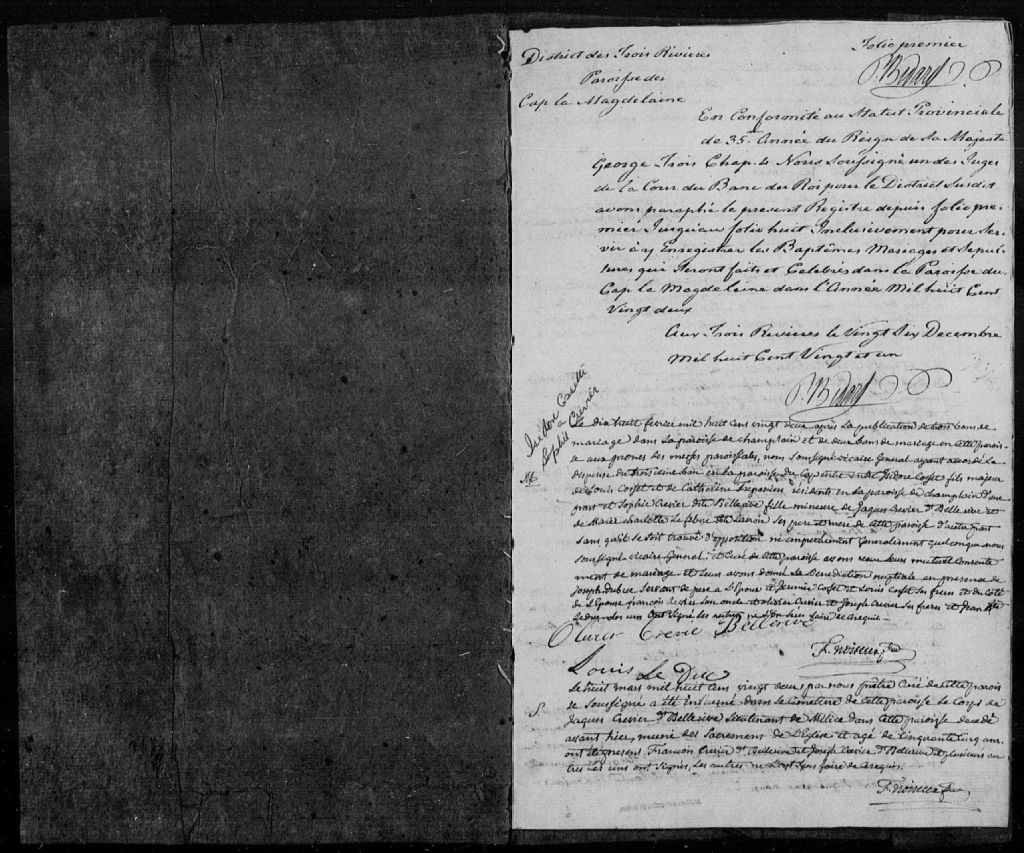 District des Trois Rivieres
Paroisse du
Cap la Magdelaine
Folio premier
Bedard
En Conformité au Statut Provinciale
de 35e. Année du Reign de Sa Majesté
George Trois Chap. 4 Nous Soussigné un des Juges
de la Cour du Banc du Roi pour le District Susdit
avons paraphé le present Registre depuis folio pre-
mier Jusqu'au folio huit Inclusivement pour Ser-
vir à y Enregistrer les Baptêmes Mariages et Sepul-
tures qui Seront faits et Celebrés dans la Paroisse du
Cap la Magdeleine dans l'Année Mil huit Cent
Vingt deux
Aux Trois Rivieres le Vingt Six Decembre
Mil huit Cent Vingt et un
Bedard
Isidore
à
Sophie Crevier
M
Le dix huit fevrier mil huit cens vingt deux après la publication de trois bans de
mariage dans la paroisse de champlain et de deux bans de mariage en cette parois-
se aux prones des messes paroissiales, nous soussigné vicaire General ayant accordé la
dispense du troisieme ban en la paroisse du Cap entre Isidore Cosset fils majeur
de Louis Cosset et de Catherine residents en la paroisse de champlain d'une
part et Sophie Crevier dite Bellerive fille mineure de Jaques Crevier dt Bellerive et
de Marie charlotte Le febvre ses pere et mere de cette paroisse d'autre part
sans qu'il se soit trouvé d'opposition ni empechement Generalement quelconque nous
soussigné vicaire General et Curé de cette paroisse avons reçu leur mutuel consente
ment de mariage et leur avons donné la Benediction nuptiale en presence de
Joseph Dubuc servant de pere a L'Epoux et Cosset et Louis Cosset ses freres et du coté
de L'Epouse françois Crevier son oncle et olivier Crevier et Joseph Crevier ses freres et Jean Bte
Leduc dont les uns ont signé les autres ne l'on sçus faire de ce requis
Oliver Crevie Bellerive
F. Noiseux ptre
Louis Le Duc
S.
Le huit mars mil huit cens vingt deux par nous prêtre Curé de cette parois
se soussigné a été inhumé dans le Cimetière de cette paroisse le Corps de
Jaques Crevier dt Bellerive Lieutenant de Milice dans cette paroisse decedé
avant hier, muni des Sacrement de L'Eglise et agé de Cinquante cinq ans
ont été presens Francois Crevier dt Bellerive et Joseph Crevier dt Bellerive et plusieurs au
tres les uns ont signés, les autres ne l'ont sçus faire de ce requis.
F. Noiseux ptre